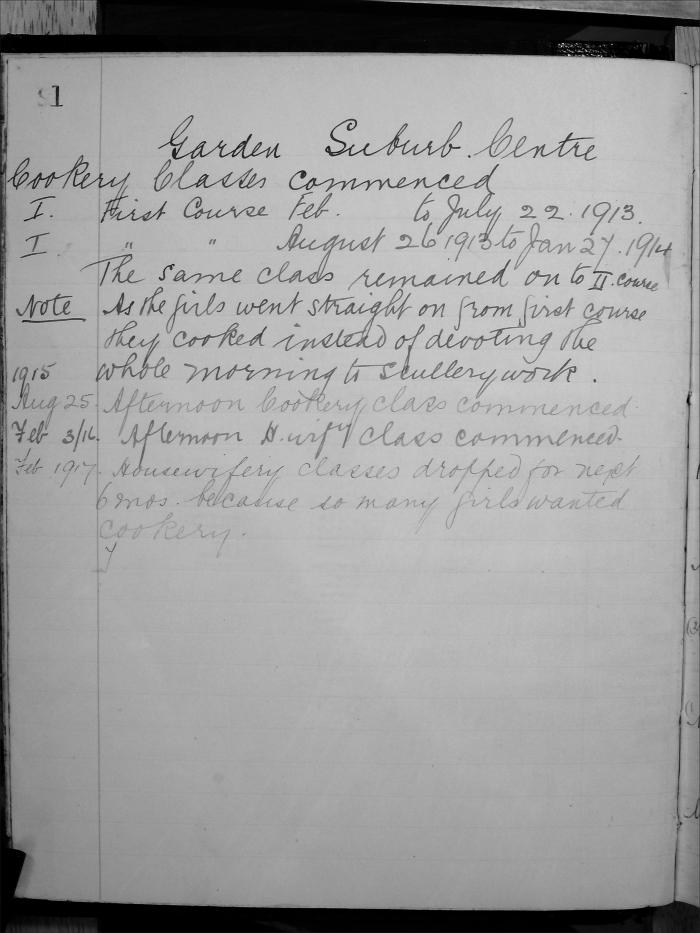 1
Garden Suburb. Centre
Cookery Classes commenced
I. First Course Feb. to July 22. 1913.
I. " " August 26 1913 to Jan 27. 1914
The same class remained on to II. course
Note As the girls went straight on from first course
they cooked instead of devoting the
1915 whole morning to scullery work.
Aug 25. Afternoon Cookery class commenced.
Feb 3/16. Afternoon H.wify class commenced.
Feb 1917. Housewifery classes dropped for next
6 mos. because so many girls wanted
cookery.